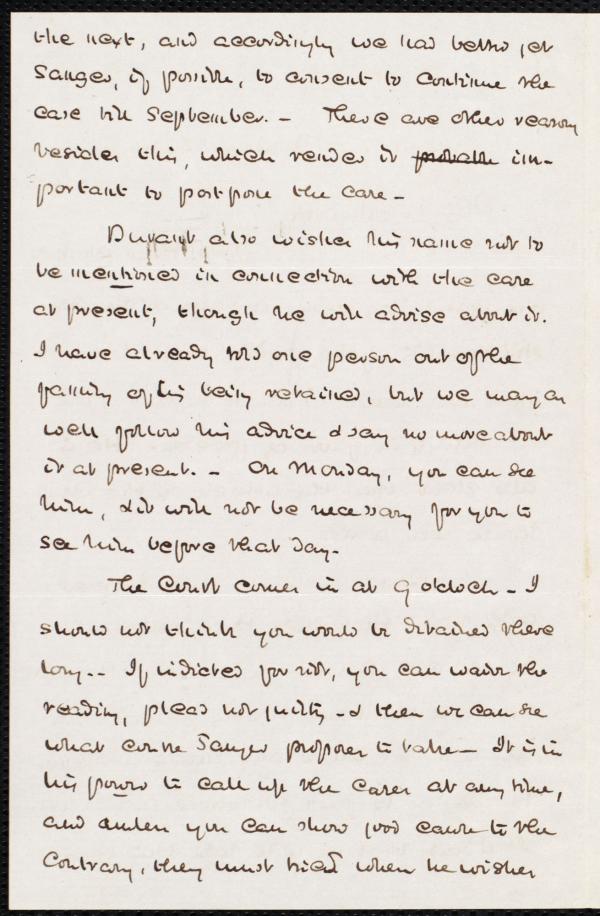 the next, and accordingly we had better get
Sanger, if possible, to consent to continue the
case till September. – There are other reasons
besides this, which render it probable im-
portant to postpone the case –
Durant also wishes his name not to
be mentioned in connection with the case
at present, though he will advise about it.
I have already told one person out of the
family of his being retained, but we may as
well follow his advice & say no more about
it at present. – On Monday, you can see
him, & it will not be necessary for you to
see him before that day –
The Court comes in at 9 oclock – I
should not think you would be detained there
long – – If indicted for riot, you can waive the
reading, plead not guilty – & then we can see
what course Sanger proposes to take – It is in
his power to call up the cases at any time,
and unless you can show good cause to the
Contrary, they must tried when he wishes